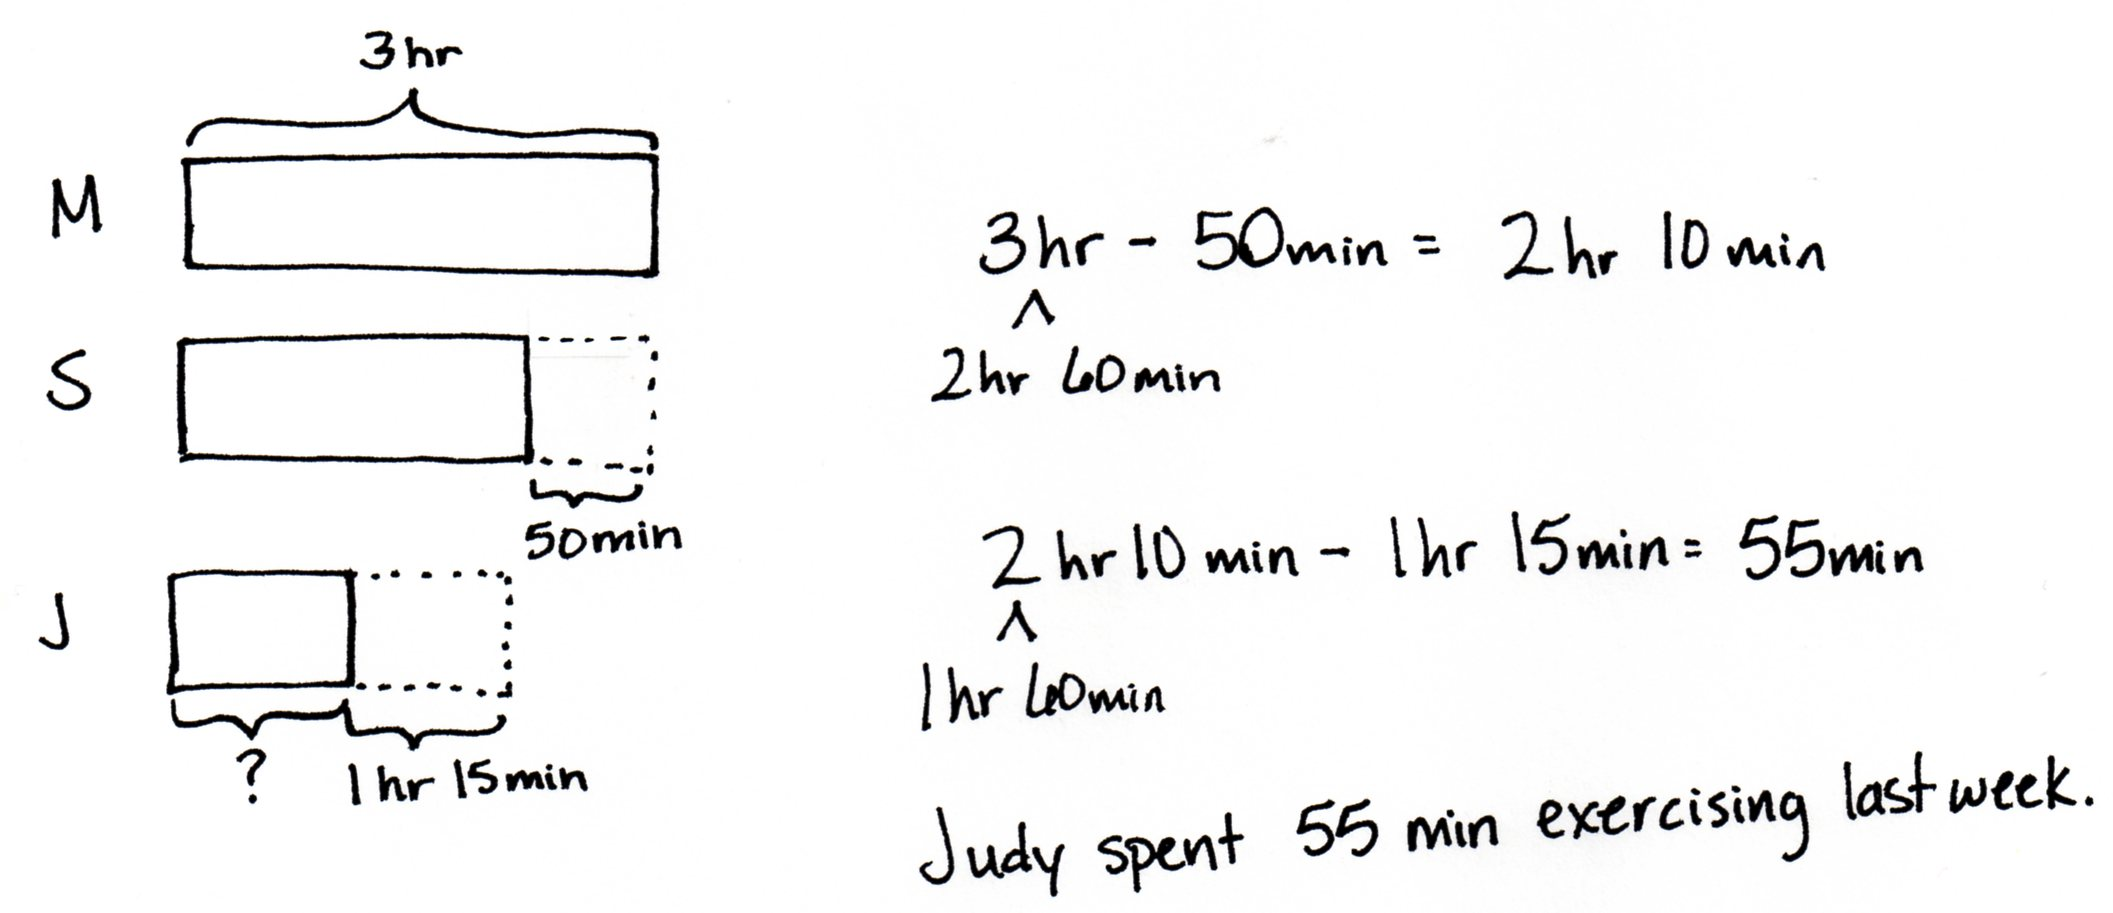 3hr
M
S
50min
J
?
1hr 15min
3hr - 50min = 2hr 10min
^
2hr 60min
2hr 10min - 1hr 15min = 55min
^
1hr 60min
Judy spent 55 min exercising last week.